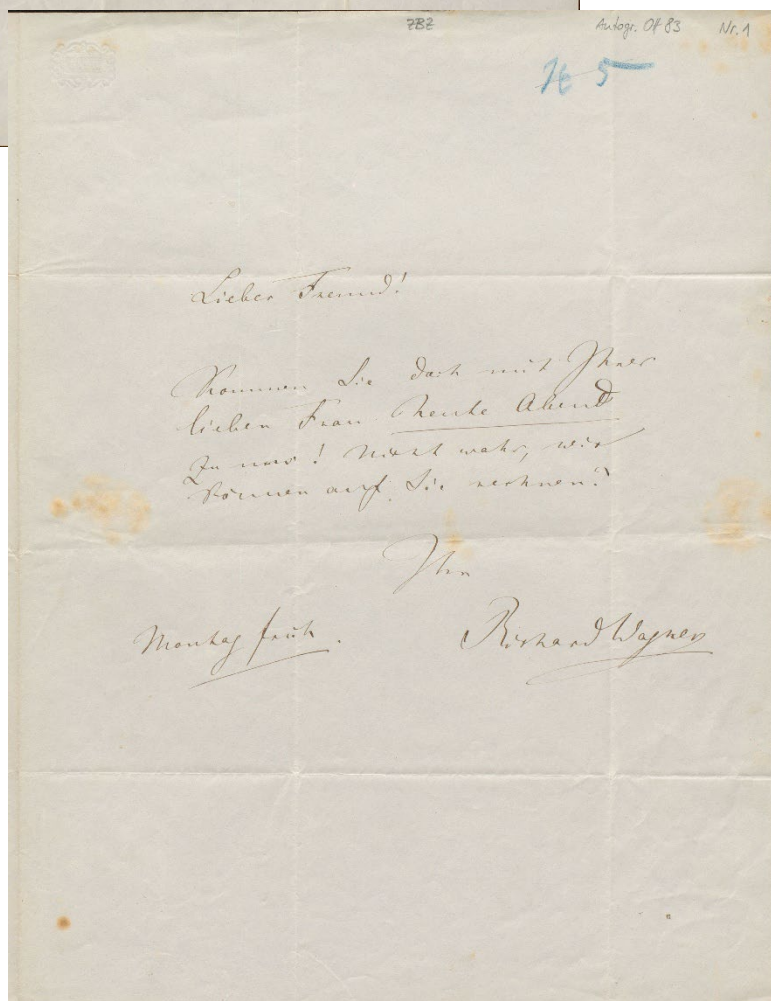 ZBZ Autogr. Ott 83 Nr. 1
Lieber Freund!
Kommen Sie doch mit Ihrer
lieben Frau heute Abend
zu uns! Nicht wahr, wir
können auf Sie rechnen?
Ihr
Montag früh.
Richard Wagner